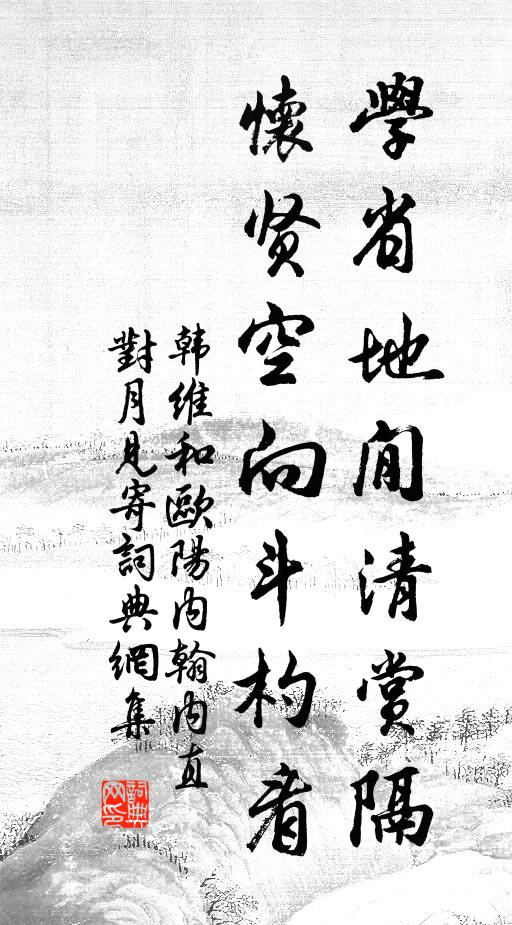 學省地閒清賞隔
懷贤空向斗杓看
韩維和歐陽内翰内直
對月見寄詞典網集
詞典
网印